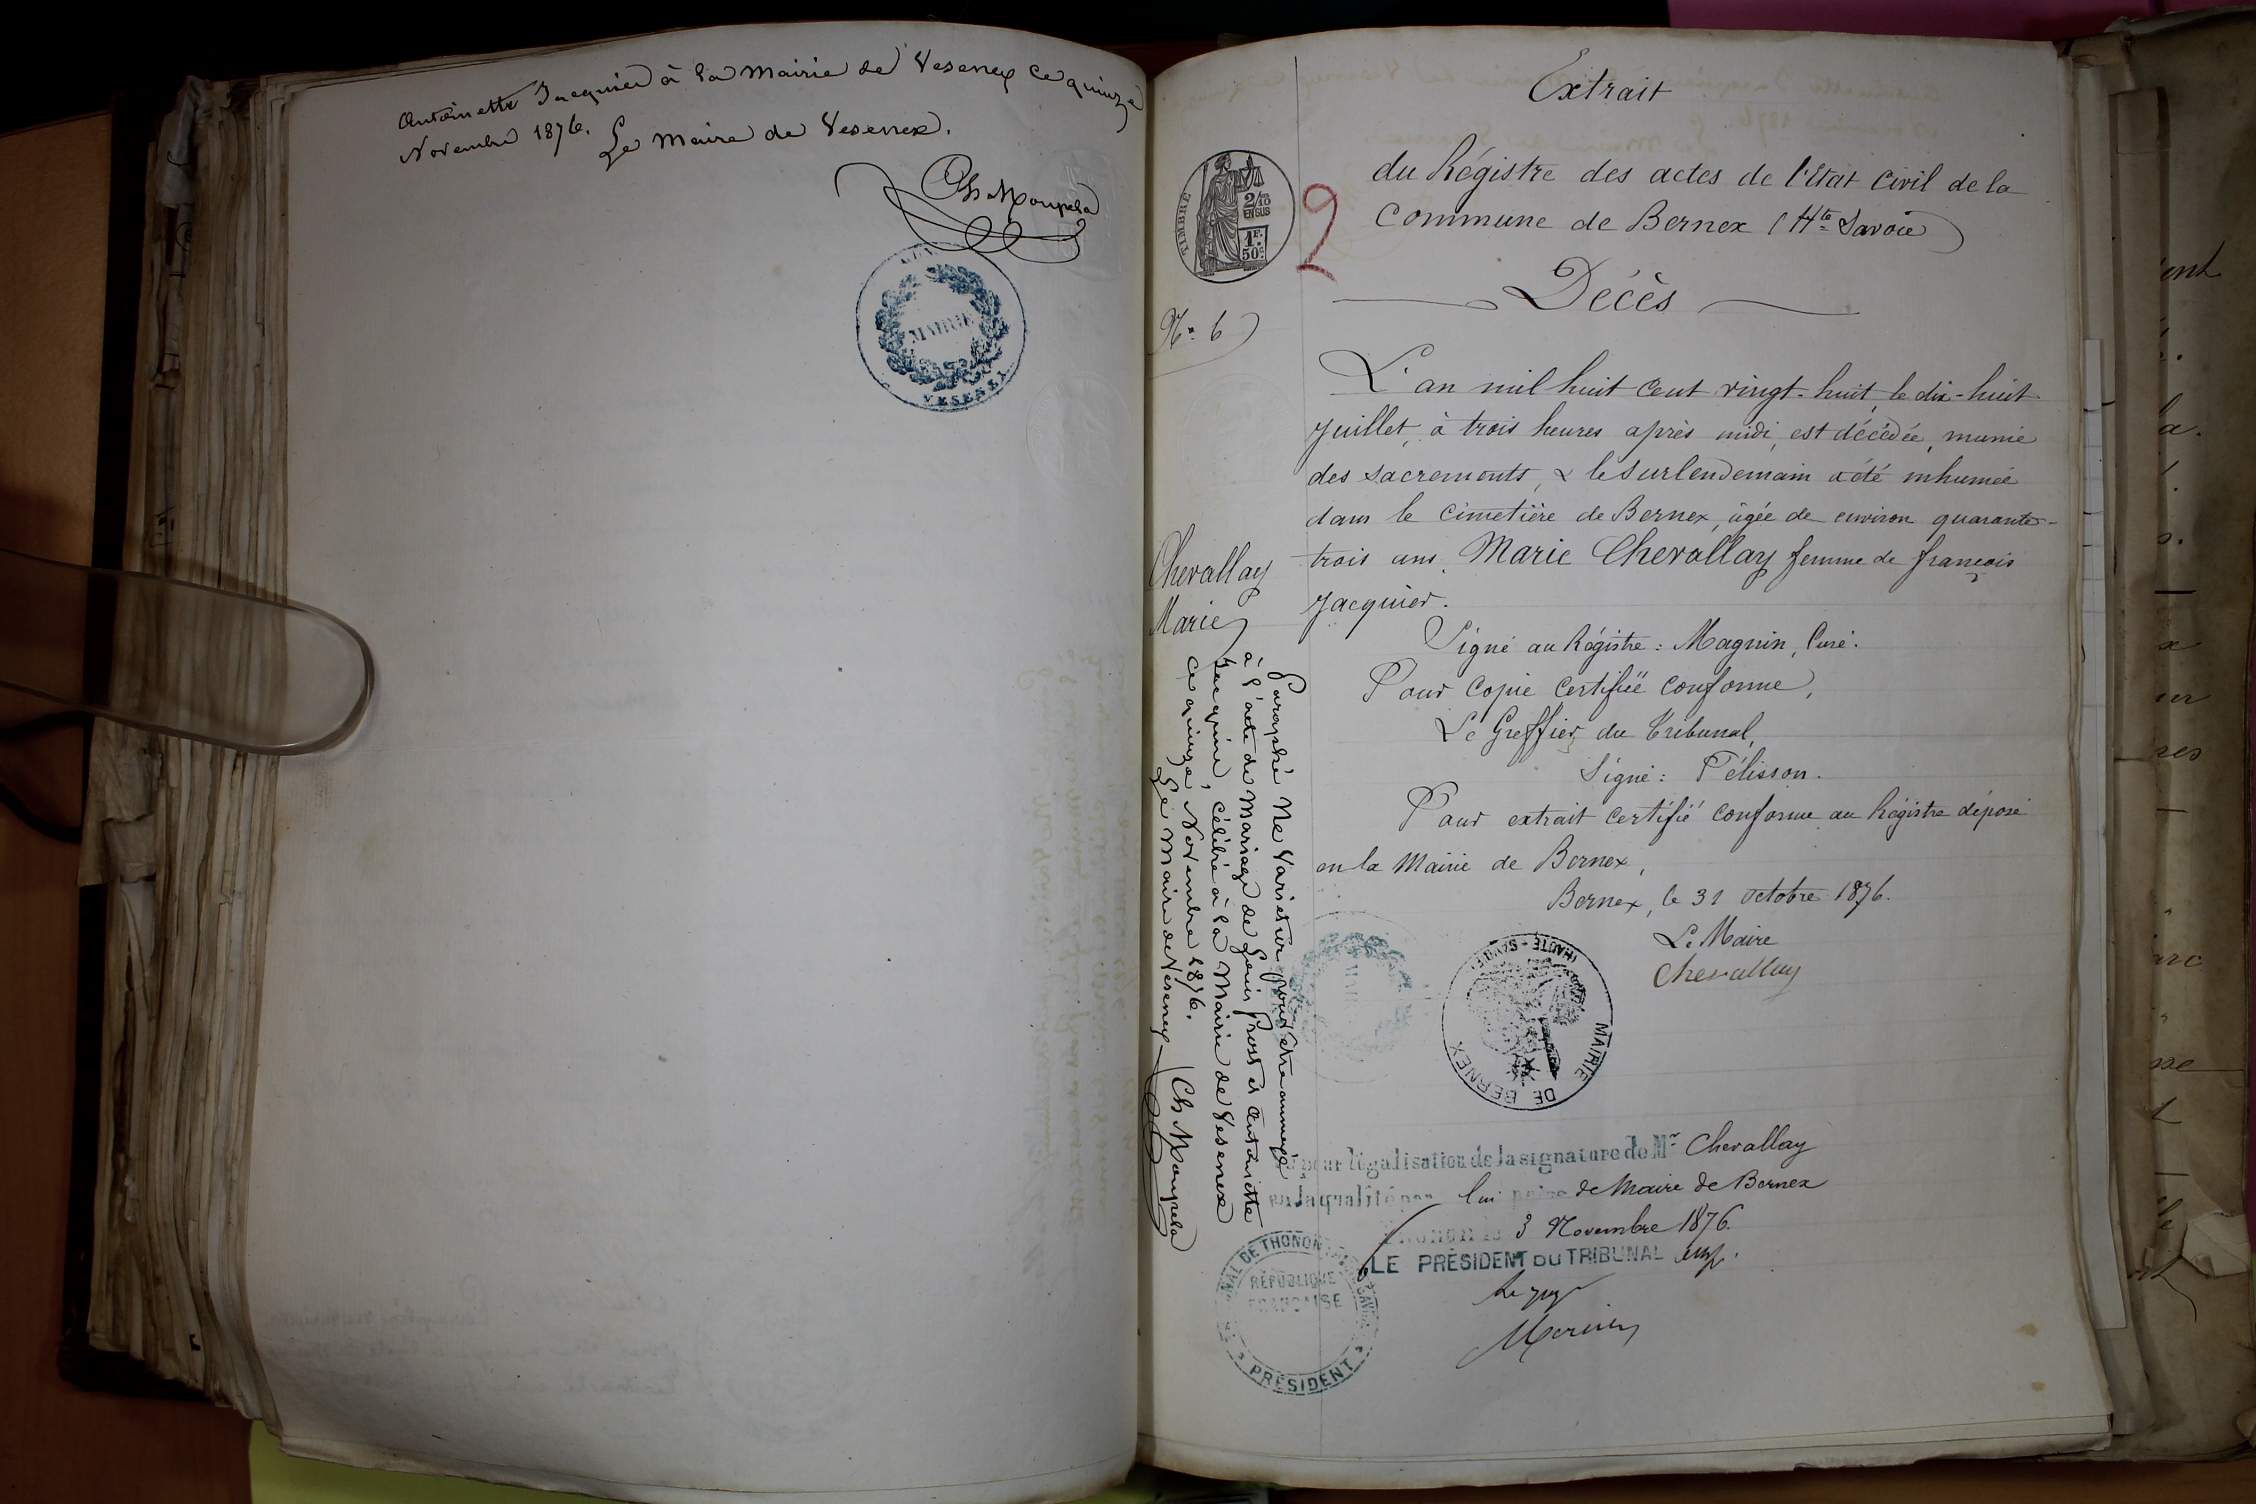 Antoinette Jacquier à la Mairie de Vesenex ce quinze
Novembre 1876.
Le Maire de Vesenex.
MAIRIE
TIMBRE
2/10
EN SUS
1F.
50c.
2
Extrait
du Régistre des actes de l'Etat Civil de la
Commune de Bernex (Hte Savoie)
Décès
No. 6
L'an mil huit cent vingt-huit, le dix-huit
Juillet, à trois heures après midi, est décédée, munie
des sacrements, & le surlendemain a été inhumée
dans le cimetière de Bernex, âgée de environ quarante-
trois ans, Marie Chevallay femme de françois
Jacquier.
Chevallay
Marie
Signé au Régistre : Magnin, Curé.
Pour copie certifiée conforme,
Le Greffier du Tribunal,
Signé : Pélisson.
Pour extrait certifié conforme au Régistre déposé
en la Mairie de Bernex,
Bernex, le 31 octobre 1876.
Le Maire
Chevallay
Paraphé Ne Varietur pour être annexé
à l'acte de Mariage de Louis Gros et Antoinette
Jacquier, célébré à la Mairie de Vesenex
ce quinze Novembre 1876.
Le Maire de Vesenex
MAIRIE DE BERNEX
(HAUTE-SAVOIE)
Vu pour légalisation de la signature de Mr Chevallay
en la qualité par lui prise de Maire de Bernex
Thonon le 3 Novembre 1876.
LE PRÉSIDENT DU TRIBUNAL emp.
Le juge
TRIBUNAL DE THONON
RÉPUBLIQUE
FRANÇAISE
PRÉSIDENT